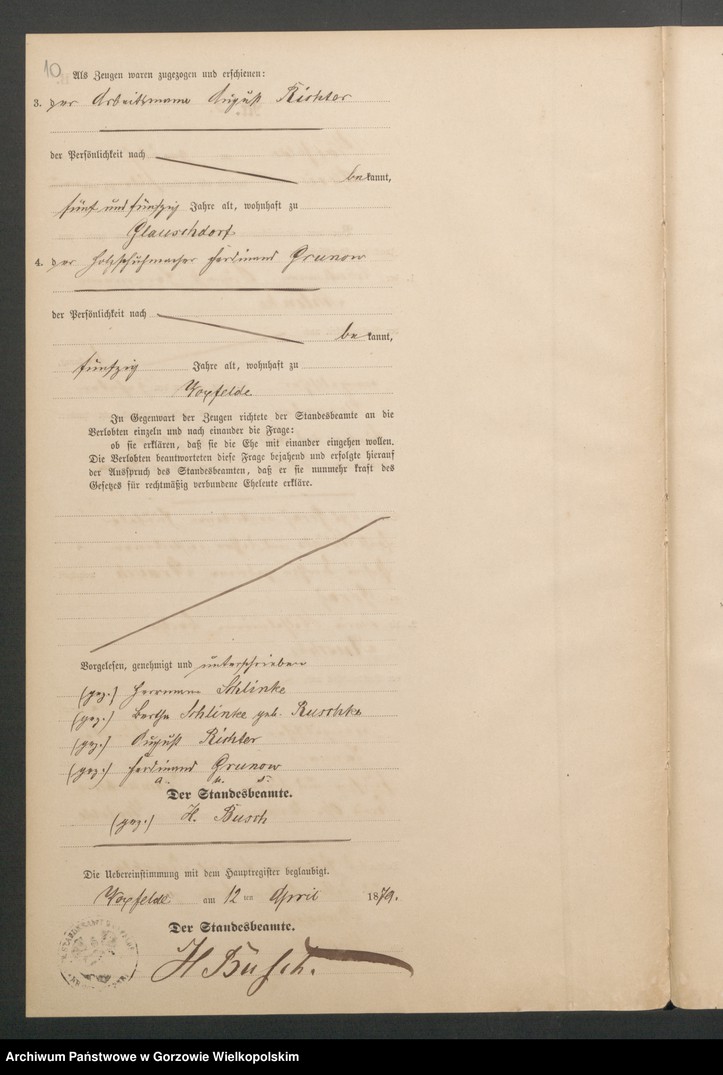 10
Als Zeugen waren zugezogen und erschienen:
3. der Arbeitsmann August Richter
der Persönlichkeit nach
bekannt,
fünf und fünfzig Jahre alt, wohnhaft zu
Glauschdorf.
4. der Holzschuhmacher Ferdinand Grunow
der Persönlichkeit nach
bekannt,
fünfzig Jahre alt, wohnhaft zu
Woxfelde
In Gegenwart der Zeugen richtete der Standesbeamte an die
Verlobten einzeln und nach einander die Frage:
ob sie erklären, daß sie die Ehe mit einander eingehen wollen.
Die Verlobten beantworteten diese Frage bejahend und erfolgte hierauf
der Ausspruch des Standesbeamten, daß er sie nunmehr kraft des
Gesetzes für rechtmäßig verbundene Eheleute erkläre.
Vorgelesen, genehmigt und unterschrieben
(gez.) Herrmann Schlinke
(gez.) Bertha Schlinke geb. Ruschke
(gez.) August Richter
(gez.) Ferdinand Grunow
a. u. s.
Der Standesbeamte.
(gez.) H. Busch
Die Uebereinstimmung mit dem Hauptregister beglaubigt.
Woxfelde am 12ten April 1879.
Der Standesbeamte.
H Busch.
Archiwum Państwowe w Gorzowie Wielkopolskim